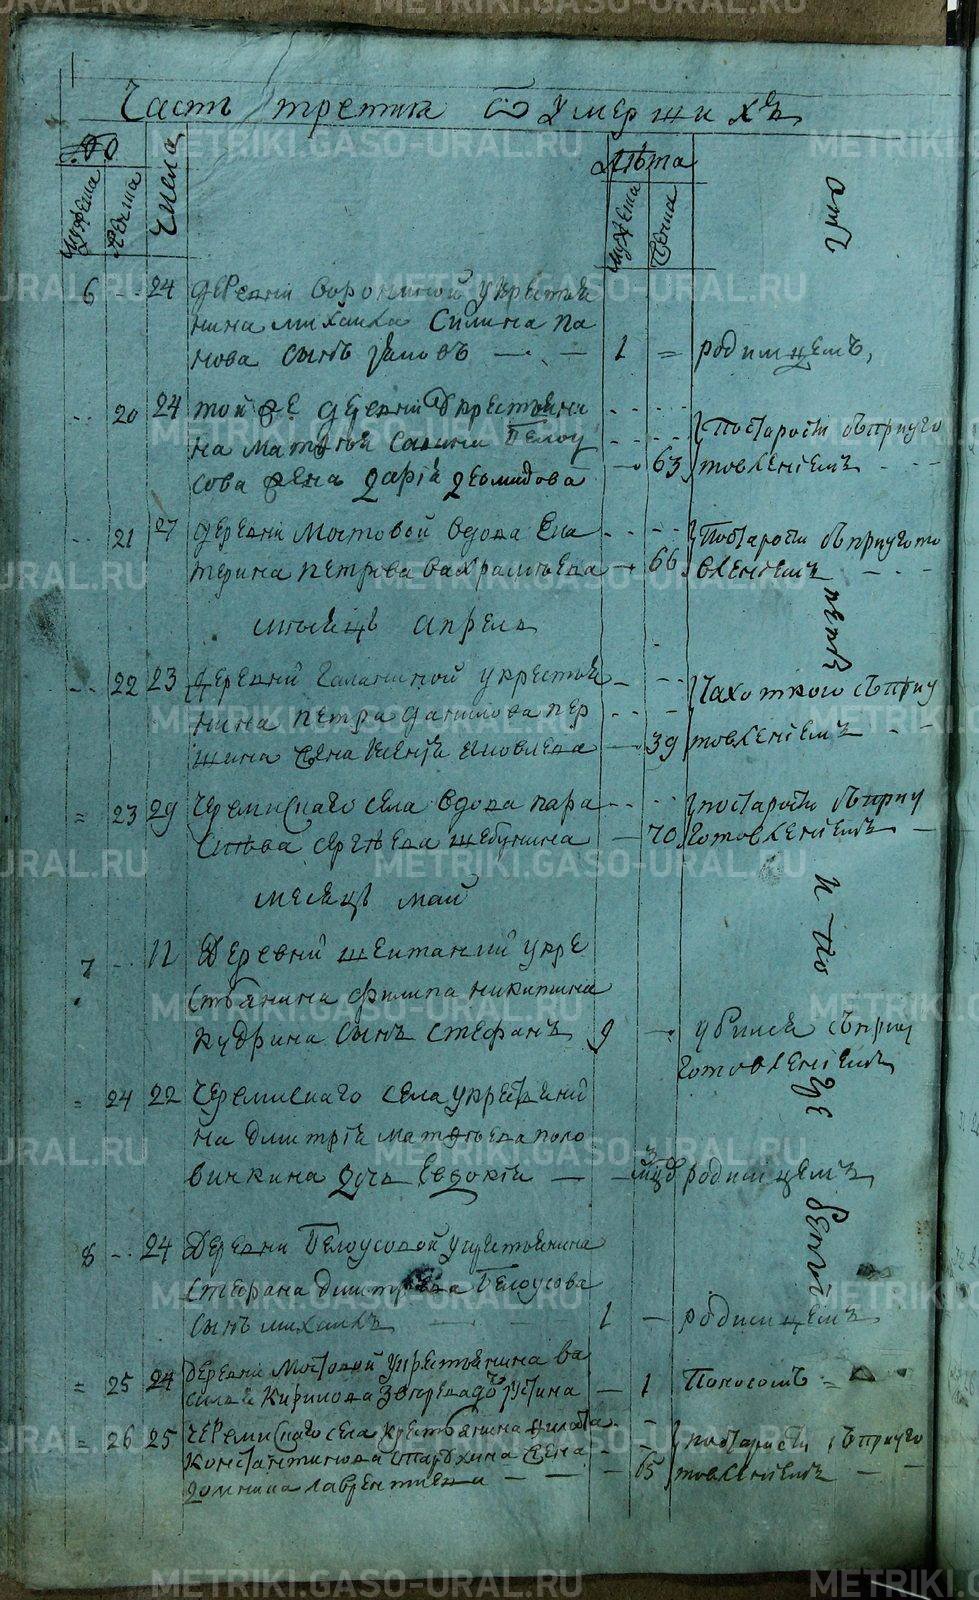 Часть третия ѿ умершихъ
№
мужеска
женска
числа
лѣта
мужеска
женска
отъ
6 -- 24 деревни Ворониной у крестья
нина михаила Силина па
нова сынъ 1 = родимцемъ,
-- 20 24 той же деревни крестьяни
на матфея савина Белоу
сова жена дарія демидова 63
Постарости съприуго
товленіемъ
-- 21 27 деревни мостовой вдова ека
терина петрова вахрамѣева 66
Постарости съприугото
вленіемъ
мѣсяцъ апрель
-- 22 23 деревни галаниной у крестья
нина петра данилова пер
шина жена ксенія яковлева 39
Чахоткою съприу
товленіемъ
= 23 29 черемискаго села вдова пара
сковья сергѣева щебунина 70
постарости съприу
готовленіемъ
месяцъ май
7 -- 12 Деревни шентанки у кре
стьянина филипа никитина
кудрина сынъ стефанъ 9
убился съприу
готовленіемъ
= 24 22 черемискаго села у крестьяни
на дмитрія матфѣева поло
винкина дочь Евдокія 3 мцъ родимцемъ
8 -- 24 Деревни Белоусовой у крестьянина
стефана дмитрева Белоусова
сынъ михаилъ 1 — родимцемъ
= 25 24 Деревни Мостовой у крестьянина ва
силья Кирилова дочь устина — 1 Поносомъ =
= 26 25 черемискаго села крестьянина
константинова жена
домника лаврентиева 65
постарости съприуго
товленіемъ